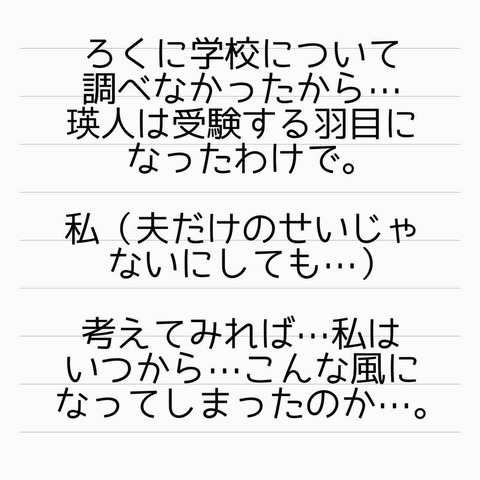 ろくに学校について
調べなかったから…
瑛人は受験する羽目に
なったわけで。
私（夫だけのせいじゃ
ないにしても…）
考えてみれば…私は
いつから…こんな風に
なってしまったのか…。